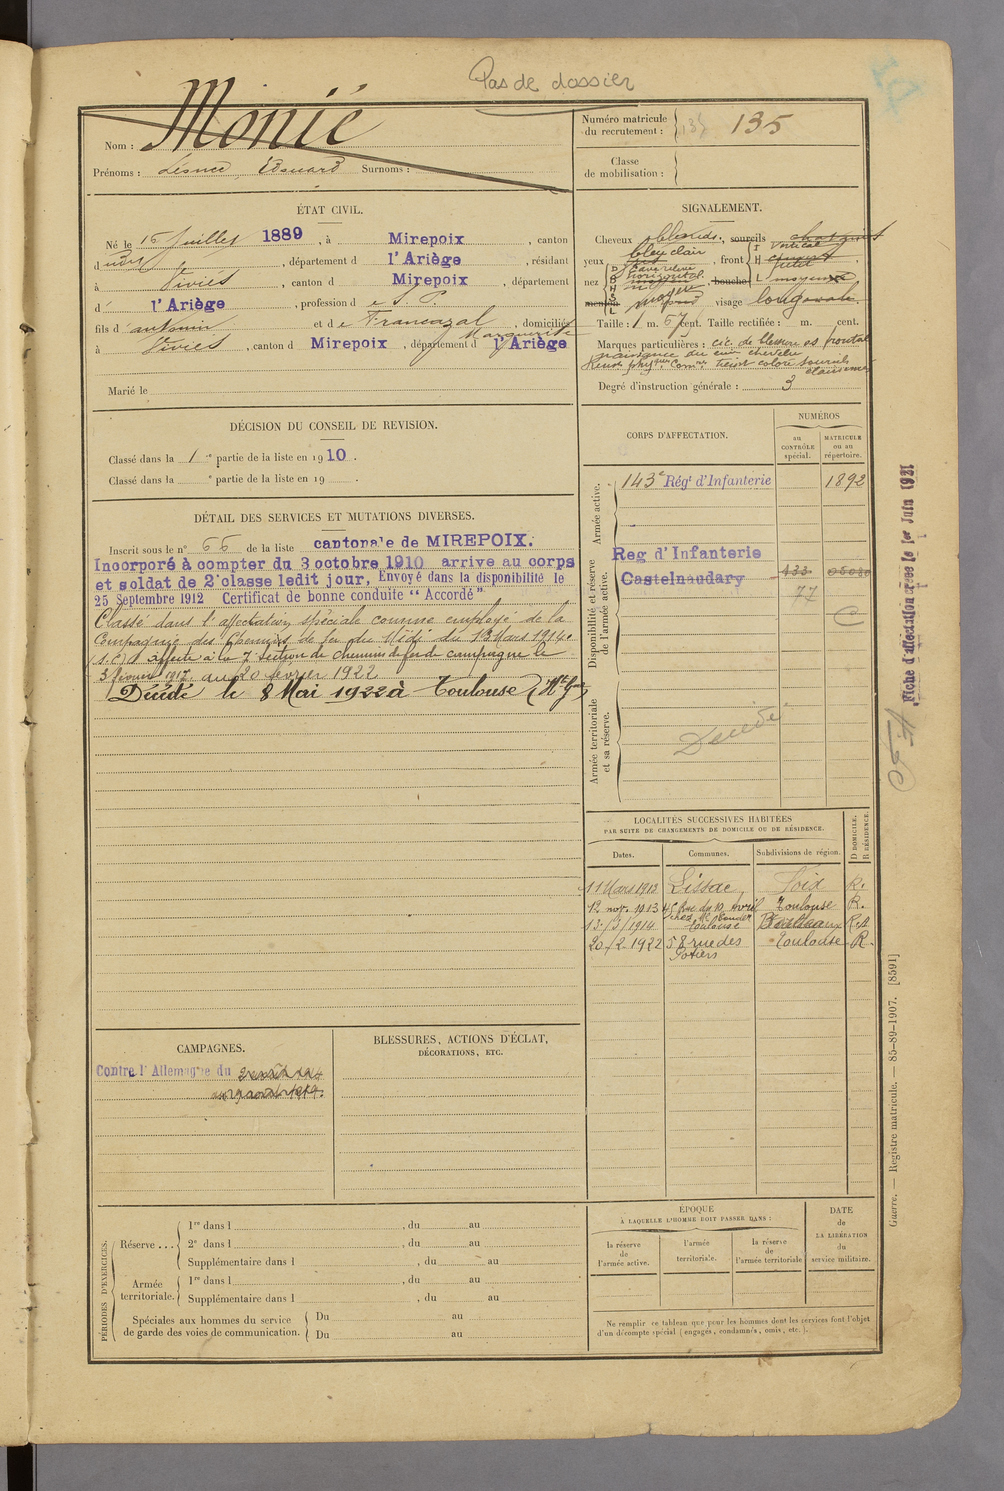 Pas de dossier
Monié
Nom :
Prénoms : Léonce, Édouard Surnoms :
Numéro matricule
du recrutement : 135
Classe
de mobilisation :
ÉTAT CIVIL.
Né le 15 Juillet 1889, à Mirepoix, canton
d dudit, département d l'Ariège, résidant
à Viviès, canton d Mirepoix, département
d' l'Ariège, profession d e S. P.
fils d' antonin et d e Francazal Marguerite, domiciliés
à Viviès, canton d Mirepoix, département d l'Ariège
Marié le
SIGNALEMENT.
Cheveux blonds, sourcils chatains
yeux bleu clair, front vertical
nez horizontal moyen, bouche moyenne
menton rond visage long ovale
Taille : 1 m. 67 cent. Taille rectifiée : m. cent.
Marques particulières : cic. de blessure os frontal
naissance du cuir chevelu
Rens. phyques Comres teint coloré sourcils
clairsemés
Degré d'instruction générale : 3
DÉCISION DU CONSEIL DE REVISION.
Classé dans la 1re partie de la liste en 1910.
Classé dans la e partie de la liste en 19 .
DÉTAIL DES SERVICES ET MUTATIONS DIVERSES.
Inscrit sous le n° 66 de la liste cantonale de MIREPOIX.
Incorporé à compter du 3 octobre 1910 arrivé au corps
et soldat de 2e classe ledit jour, Envoyé dans la disponibilité le
25 Septembre 1912 Certificat de bonne conduite "Accordé"
Classé dans l'affectation spéciale comme employé de la
Compagnie des Chemins de fer du Midi du 13 Mars 1914.
(S.C) affecté à la 7e Section de chemins de fer de campagne le
3 février 1917. au 20 février 1922
Décédé le 8 Mai 1922 à Toulouse (Hte Gne)
CORPS D'AFFECTATION.
NUMÉROS
au
CONTRÔLE
spécial.
MATRICULE
ou au
répertoire.
Armée active.
143e Régt d'Infanterie 1892
Disponibilité et réserve
de l'armée active.
Reg d'Infanterie
Castelnaudary 133 05080
77
C
Armée territoriale
et sa réserve.
Décédé
Fiche d'affectation créée le 1er Juin 1921
LOCALITÉS SUCCESSIVES HABITÉES
PAR SUITE DE CHANGEMENTS DE DOMICILE OU DE RÉSIDENCE.
Dates. Communes. Subdivisions de région. D DOMICILE. R RÉSIDENCE.
11 Mars 1913 Lissac Foix R.
12 nov. 1913 45 Rue du 10 Avril Toulouse R.
chez Me
13/3/1914 Toulouse Bordeaux R.
20/2 1922 58 rue des Toulouse R.
Potiers
CAMPAGNES.
Contre l'Allemagne du
BLESSURES, ACTIONS D'ÉCLAT,
DÉCORATIONS, ETC.
PÉRIODES D'EXERCICES.
Réserve ... 1re dans l , du au
2e dans l , du au
Supplémentaire dans l , du au
Armée
territoriale. 1re dans l , du au
Supplémentaire dans l , du au
Spéciales aux hommes du service
de garde des voies de communication. Du au
Du au
ÉPOQUE
À LAQUELLE L'HOMME DOIT PASSER DANS :
la réserve
de
l'armée active.
l'armée
territoriale.
la réserve
de
l'armée territoriale
DATE
de
LA LIBÉRATION
du
service militaire.
Ne remplir ce tableau que pour les hommes dont les services font l'objet
d'un décompte spécial (engagés, condamnés, omis, etc.).
Guerre. — Registre matricule. — 85-89-1907. [8591]